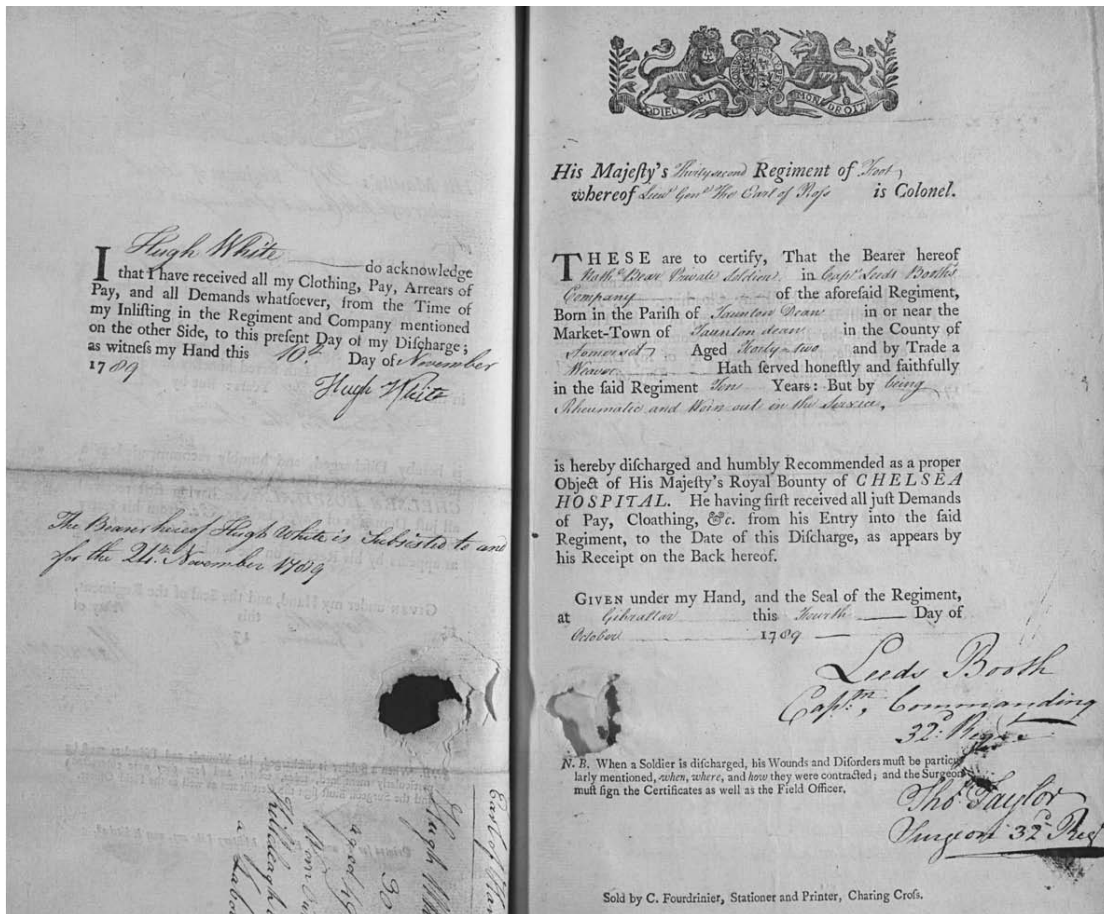 I Hugh White do acknowledge
that I have received all my Clothing, Pay, Arrears of
Pay, and all Demands whatſoever, from the Time of
my Inliſting in the Regiment and Company mentioned
on the other Side, to this preſent Day of my Diſcharge;
as witneſs my Hand this 10th Day of November
1789
Hugh White
The Bearer hereof Hugh White is Subsisted to and
for the 24th November 1789
Earl of
Hugh
30
aged 49
Born
Killileagh
a Labo
DIEU ET MON DROIT
His Majeſty's Thirty second Regiment of Foot
whereof Lieut Genl The Earl of Roſs is Colonel.
THESE are to certify, That the Bearer hereof
Nathl Bear Private Soldier in Capt Leeds Booth's
Company of the aforeſaid Regiment,
Born in the Pariſh of Taunton Dean in or near the
Market-Town of Taunton dean in the County of
Somerset Aged Forty-two and by Trade a
Weaver Hath ſerved honeſtly and faithfully
in the ſaid Regiment Ten Years: But by being
Rheumatic and Worn out in the Service,
is hereby diſcharged and humbly Recommended as a proper
Object of His Majeſty's Royal Bounty of CHELSEA
HOSPITAL. He having firſt received all juſt Demands
of Pay, Cloathing, &c. from his Entry into the ſaid
Regiment, to the Date of this Diſcharge, as appears by
his Receipt on the Back hereof.
GIVEN under my Hand, and the Seal of the Regiment,
at Gibraltar this Fourth Day of
October 1789
Leeds Booth
Captn, Commanding
32d Regt
N. B. When a Soldier is diſcharged, his Wounds and Diſorders muſt be particu
larly mentioned, when, where, and how they were contracted; and the Surgeon
muſt ſign the Certificates as well as the Field Officer.
Thos Taylor
Surgeon 32d Reg
Sold by C. Fourdrinier, Stationer and Printer, Charing Croſs.